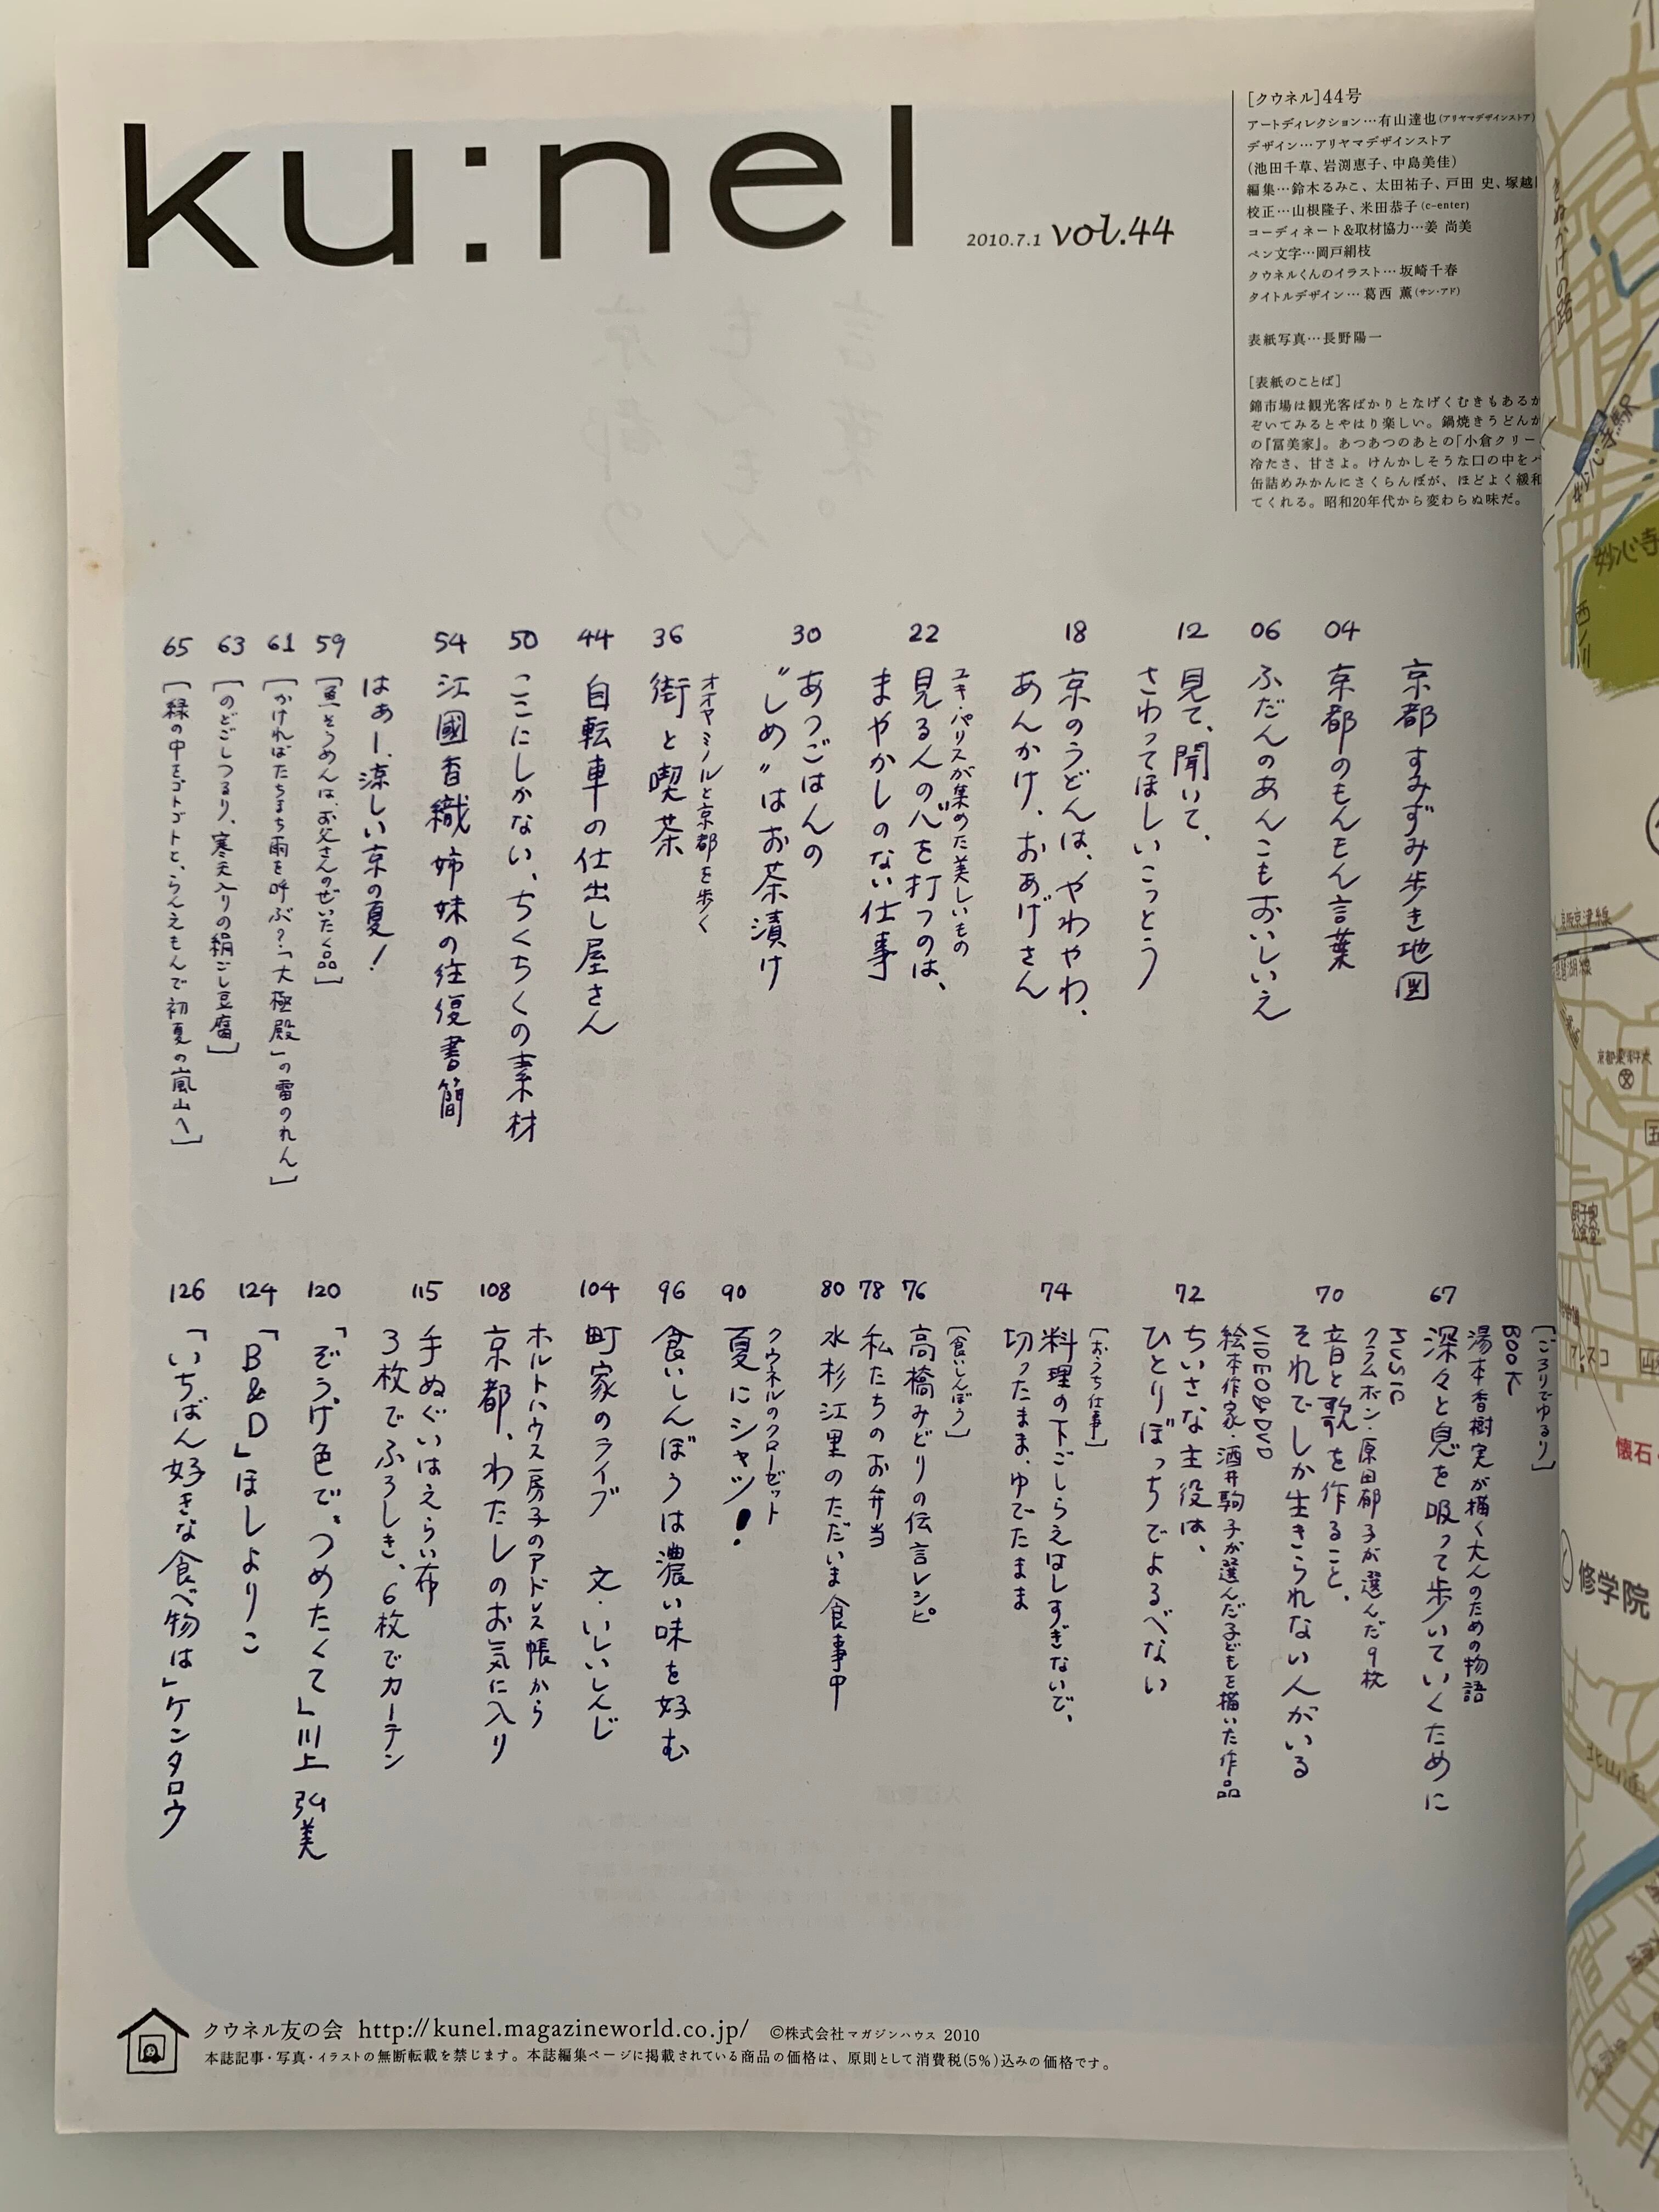 ku:nel
2010.7.1 vol.44
[クウネル]44号
アートディレクション…有山達也(アリヤマデザインストア)
デザイン…アリヤマデザインストア
(池田千草、岩渕恵子、中島美佳)
編集…鈴木るみこ、太田祐子、戸田 史、塚越
校正…山根隆子、米田恭子(c-enter)
コーディネート&取材協力…姜 尚美
ペン文字…岡戸絹枝
クウネルくんのイラスト…坂崎千春
タイトルデザイン…葛西 薫(サン・アド)
表紙写真…長野陽一
[表紙のことば]
錦市場は観光客ばかりとなげくむきもあるか
ぞいてみるとやはり楽しい。鍋焼きうどんか
の『冨美家』。あつあつのあとの「小倉クリー
冷たさ、甘さよ。けんかしそうな口の中をバ
缶詰めみかんにさくらんぼが、ほどよく緩和
てくれる。昭和20年代から変わらぬ味だ。
京都すみずみ歩き地図
04 京都のもんもん言葉
06 ふだんのあんこもおいしいえ
12 見て、聞いて、
さわってほしいこっとう
18 京のうどんは、やわやわ、
あんかけ、おあげさん
ユキ・パリスが集めた美しいもの
22 見る人の心を打つのは、
まやかしのない仕事
30 あつごはんの
〝しめ〟はお茶漬け
オオヤミノルと京都を歩く
36 街と喫茶
44 自転車の仕出し屋さん
50 ここにしかない、ちくちくの素材
54 江國香織 姉妹の往復書簡
はぁー、涼しい京の夏!
59 [魚そうめんは、お父さんのぜいたく品]
61 [かければたちまち雨を呼ぶ?「大極殿」の雷のれん]
63 [のどごしつるり、寒天入りの絹ごし豆腐]
65 [緑の中をゴトゴトと、らんえもんで初夏の嵐山へ]
[ごろりでゆるり]
BOOK
湯本香樹実が描く大人のための物語
67 深々と息を吸って歩いていくために
MUSIC
クラムボン・原田郁子が選んだ9枚
70 音と歌を作ること。
それでしか生きられない人がいる
VIDEO&DVD
絵本作家・酒井駒子が選んだ子どもを描いた作品
72 ちいさな主役は、
ひとりぼっちでよるべない
[おうち仕事]
74 料理の下ごしらえはしすぎないで、
切ったまま、ゆでたまま
[食いしんぼう]
76 高橋みどりの伝言レシピ
78 私たちのお弁当
80 水杉江里のただいま食事中
クウネルのクローゼット
90 夏にシャツ!
96 食いしんぼうは濃い味を好む
104 町家のライブ 文・いしいしんじ
ホルトハウス房子のアドレス帳から
108 京都、わたしのお気に入り
115 手ぬぐいはえらい布
3枚でふろしき、6枚でカーテン
120 「ぞうげ色で、つめたくて」川上弘美
124 「B&D」ほしよりこ
126 「いちばん好きな食べ物は」ケンタロウ
クウネル友の会 http://kunel.magazineworld.co.jp/ ©株式会社マガジンハウス 2010
本誌記事・写真・イラストの無断転載を禁じます。本誌編集ページに掲載されている商品の価格は、原則として消費税(5%)込みの価格です。
きぬかけの路
妙心寺駅
妙心寺
西ノ川
京阪京津線
琵琶湖線
京都薬科大
懐石
修学院
北山通